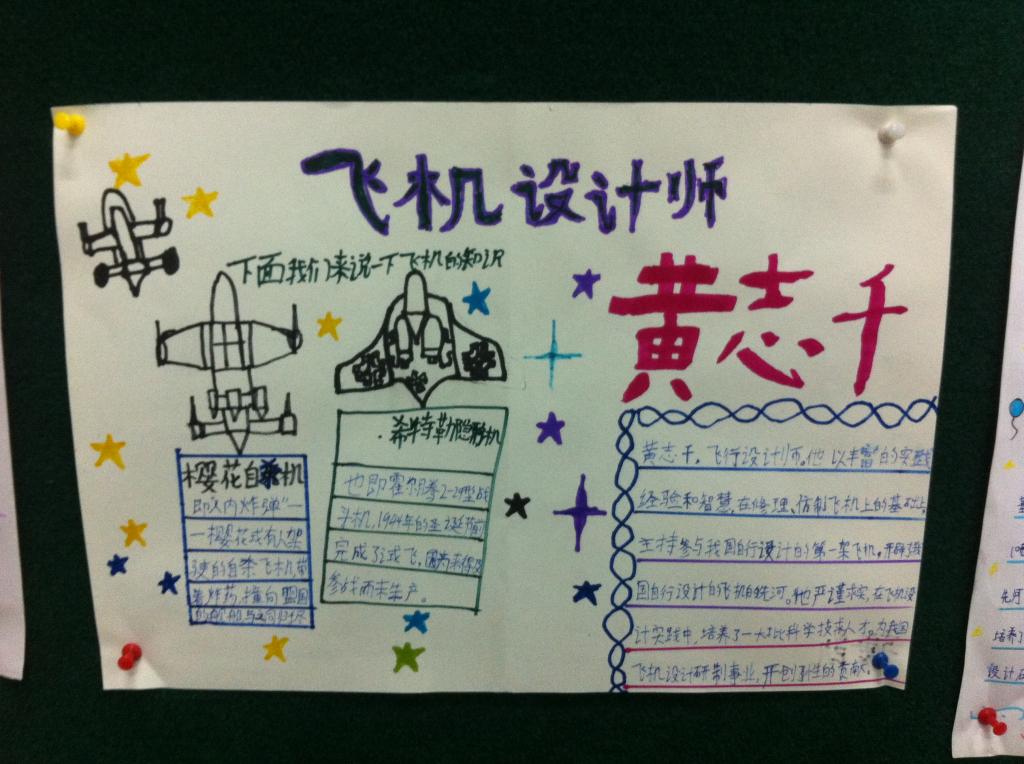 飞机设计师
下面我们来说一下飞机的知识
黄志千
樱花自杀机
即人肉炸弹"一
一樱花式有人架
驶的自杀飞机带
着炸药,撞向盟国
的舰船与之同归于尽
希特勒隐形机
也即霍尔滕2-29型战
斗机,1944年的圣诞节前
完成了试飞,因为来得及
参战而未生产。
黄志千,飞行设计师。他以丰富的实践
经验和智慧,在修理、仿制飞机上的基础上
主持参与我国自行设计的第一架飞机。开辟我
国自行设计的飞机的先河。他严谨求实,在飞机设
计实践中,培养了一大批科学技术人才。为我国
飞机设计研制事业,开创性的贡献。
培养了
设计